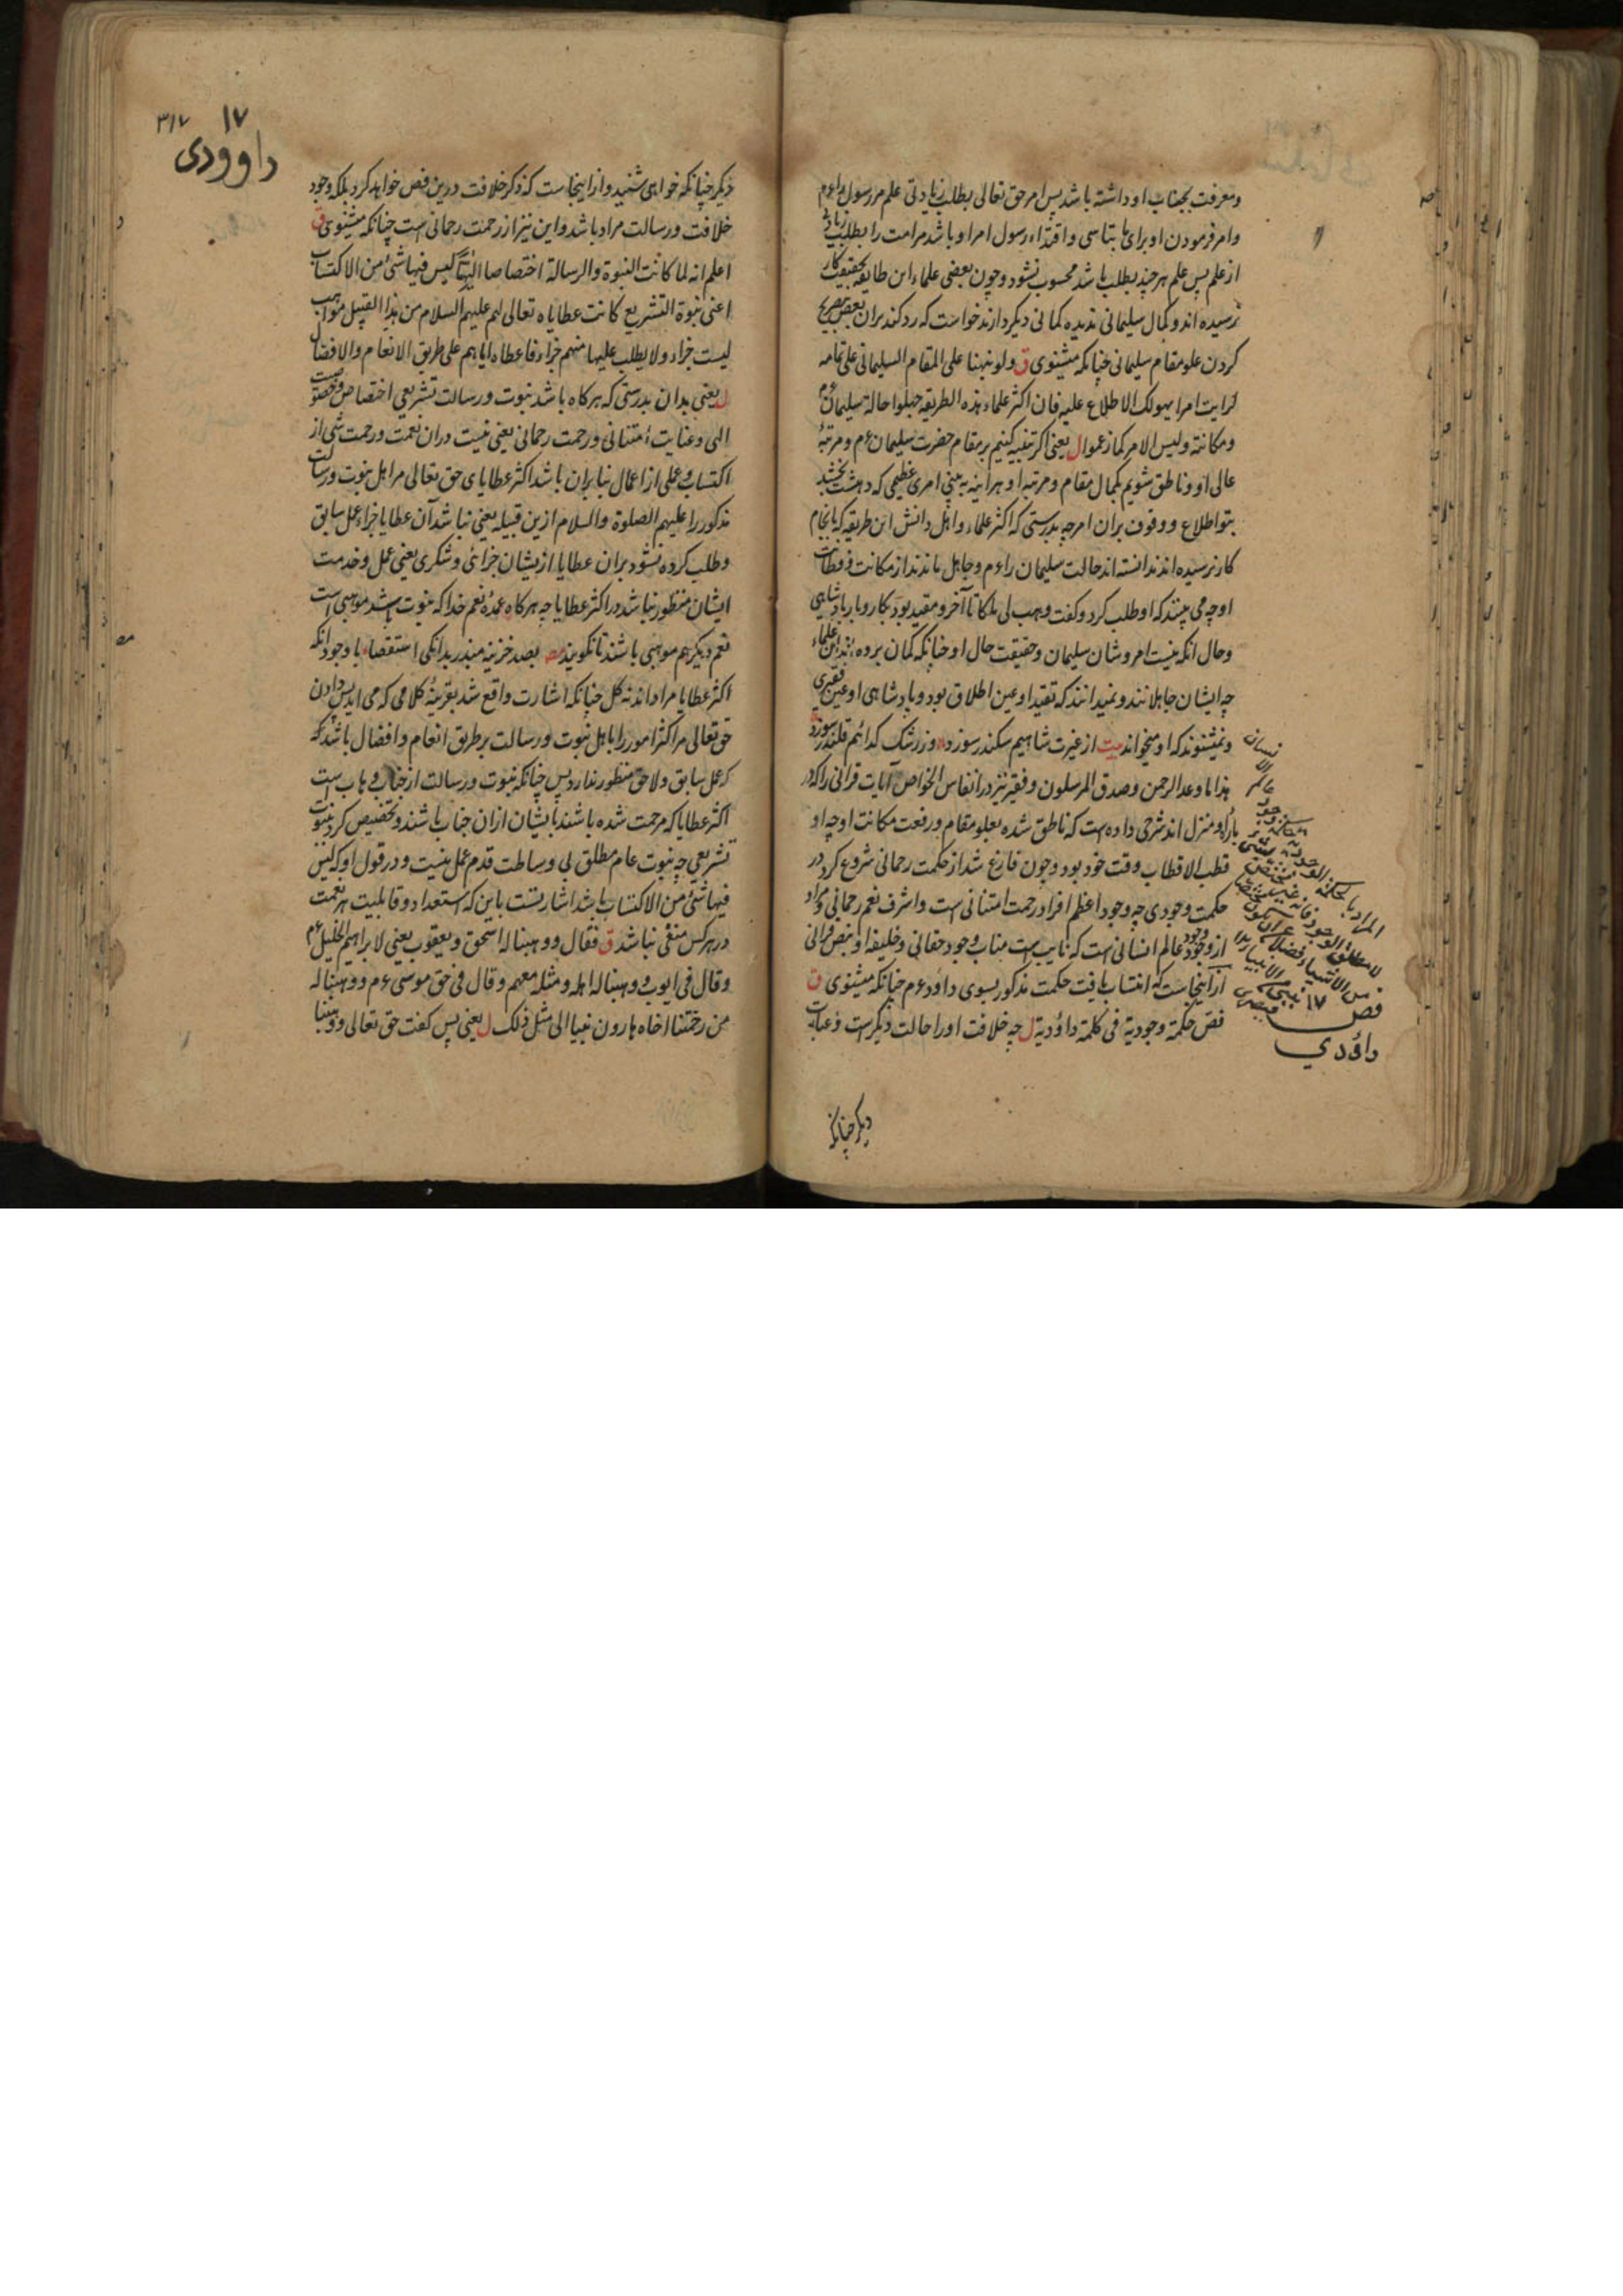 ومعرفت بجناب او داشته باشد پس امر حق تعالی بطلب زیادتی علم مر رسول راءم
وامر فرمودن او برای ما بتاسی واقتداء رسول امر او باشد مر امت را بطلب زیادتی
از علم پس علم هر چند بطلب باشد محسوب نشود و چون بعضی علماء این طایفه بحقیقت کار
نرسیده اند و کمال سلیمانی ندیده کمانی دیکر دارند خواست که رد کند بران بعض بتصریح
کردن علو مقام سلیمانی چنانکه میثنوی ق ولو نبهنا علی المقام السلیمانی علی تمامه
لرایت امرا یهولک الاطلاع علیه فان اکثر علماء هذه الطریقه جهلوا حالة سلیمان ءم
ومکانته ولیس الامر کما زعموا ل یعنی اکر تنبیه کنیم بر مقام حضرت سلیمان ءم و مرتبهٔ
عالی او و ناطق شویم بکمال مقام و مرتبه او هراینه به بینی امری عظیمی که دهشت بخشد
بتو اطلاع و وقوف بران امر چه بدرستی که اکثر علماء و اهل دانش این طریقه که بانجام
کار نرسیده اند ندانسته اند حالت سلیمان راءم و جاهل ماندند از مکانت
او چه می بینند که او طلب کرد و کفت وهب لی ملکا تا آخر و مقید بود بکار و بار بادشاهی
و حال آنکه نیست امر و شان سلیمان و حقیقت حال او چنانکه کمان برده اند این علماء
چه ایشان جاهلانند و نمیدانند که تقید او عین اطلاق بود و پادشاهی او عین فقیری
و نمیشنوند که او میخواند بیت از غیرت شاهیم سکندر سوزد وز رشک کدائیم قلندر سوزد
هذا ما وعد الرحمن وصدق المرسلون و فقیر نیز در انفاس الخواص آیات قرانی را که در
بارهٔ او منزل اند شرحی داده است که ناطق شده بعلو مقام و رفعت مکانت او چه او
قطب الاقطاب وقت خود بود و چون فارغ شد از حکمت رحمانی شروع کرد در
حکمت وجودی چه وجود اعظم افراد رحمت امتنانی است و اشرف نعم رحمانی و مراد
از وجود وجود عالم انسانی است که نایب است مناب وجود حقانی و خلیفه او بنص قرانی
از اینجاست که انتساب یافت حکمت مذکور بسوی داؤد ءم چنانکه میثنوی ق
فص حکمة وجودیة فی کلمة داؤدیة ل چه خلافت او را حالت دیکر است و عنایت
المراد بالحکمة الوجودیة
الانسان
لا مطلق الوجود فانه غیر مختص
من الاشیاء فضلا عن ان یکون
بنبی من الانبیاء
۱۷
فص
داؤدی
دیکر چنانکه
۳۱۷
۱۷
داوودی
دیکر چنانکه خواهی شنید و از اینجاست که ذکر خلافت درین فص خواهد کرد بلکه وجود
خلافت و رسالت مراد باشد و این نیز از رحمت رحمانی است چنانکه میثنوی ق
اعلم انه لما کانت النبوة والرسالة اختصاصا الهیا لیس فیها شیٔ من الاکتساب
اعنی نبوة التشریع کانت عطایاه تعالی لهم علیهم السلام من هذا القبیل مواهب
لیست جزاء ولا یطلب علیها منهم جزاء فاعطاه ایاهم علی طریق الانعام والافضال
ل یعنی بدان بدرستی که هرکاه باشد نبوت و رسالت تشریعی اختصاص و خصوصیت
الهی و عنایت امتنانی و رحمت رحمانی یعنی نیست دران نعمت و رحمت شی از
اکتساب و عملی از اعمال بنابران باشد اکثر عطایای حق تعالی مر اهل نبوت و رسالت
مذکور را علیهم الصلوة والسلام ازین قبیله یعنی نباشد آن عطایا جزاء عمل سابق
و طلب کرده نشود بران عطایا از یشان جزائی و شکری یعنی عمل و خدمت
ایشان منظور نباشد در اکثر عطایا چه هرکاه عمدهٔ نعم خدا که نبوت باشد موهبی است
نعم دیکر هم موهبی باشند تا نکویند بصد خزینه میندر بدانکی استقصاء با وجود آنکه
اکثر عطایا مراد اند نه کل چنانکه اشارت واقع شد بقرینهٔ کلامی که می آید پس دادن
حق تعالی مر اکثر امور را باهل نبوت و رسالت بر طریق انعام و افضال باشد که
کرعمل سابق و لاحق منظور ندارد پس چنانکه نبوت و رسالت از جناب وهاب است
اکثر عطایا که مرحمت شده باشند بایشان ازان جناب باشند و تخصیص کرد نبوت
تشریعی چه نبوت عام مطلق بی وساطت قدم عمل نیست و در قول او که لیس
فیها شیٔ من الاکتساب باشد اشارتست باین که استعداد و قابلیت هر نعمت
در هر کس منفی نباشد ق فقال ووهبنا له اسحق ویعقوب یعنی لابراهیم الخلیل ءم
وقال فی ایوب ووهبنا له اهله ومثله معهم وقال فی حق موسی ءم ووهبنا له
من رحمتنا اخاه هارون نبیا الی مثل ذلک ل یعنی پس کفت حق تعالی ووهبنا